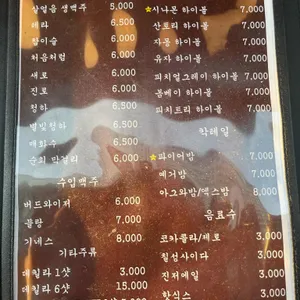 살얼음 생맥주 5,000
테라 6,000
참이슬 6,000
처음처럼 6,000
새로 6,000
진로 6,000
청하 6,500
별빛청하 6,500
매화수 6,500
순희 막걸리 6,000
수입맥주
버드와이저 6,000
블랑 7,000
기네스 8,000
기타주류
데킬라 1샷 3,000
데킬라 6샷 15,000
★시나몬 하이볼 7,000
산토리 하이볼 7,000
자몽 하이볼 7,000
유자 하이볼 7,000
피치얼그레이 하이볼 7,000
봄베이 하이볼 7,000
피치트리 하이볼 7,000
칵테일
★파이어밤 7,000
예거밤 7,000
아그와밤/엑스밤 8,000
음료수
코카콜라/제로 3,000
칠성사이다 3,000
진저에일 3,000
핫식스 3,000